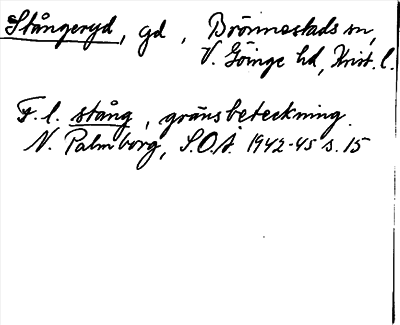 Stångeryd, gd, Brönnestads sn,
V. Göinge hd, Krist. l.
F. l. stång, gränsbeteckning.
N. Palmborg, S.O.Å. 1942-45 s. 15